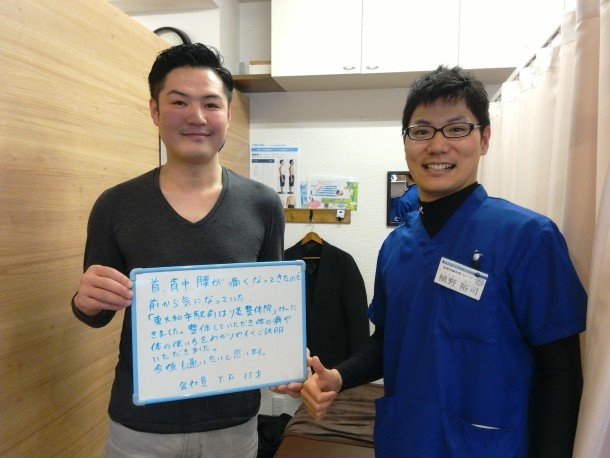 首、背中、腰が痛くなってきたので
前から気になっていた
「東大和市駅前はり灸整体院」さんに
きました。整体していただき体の癖や
体の使い方をわかりやすくご説明
いただきました。
今後も通いたいと思います。
会社員 Y.F
植野 裕司